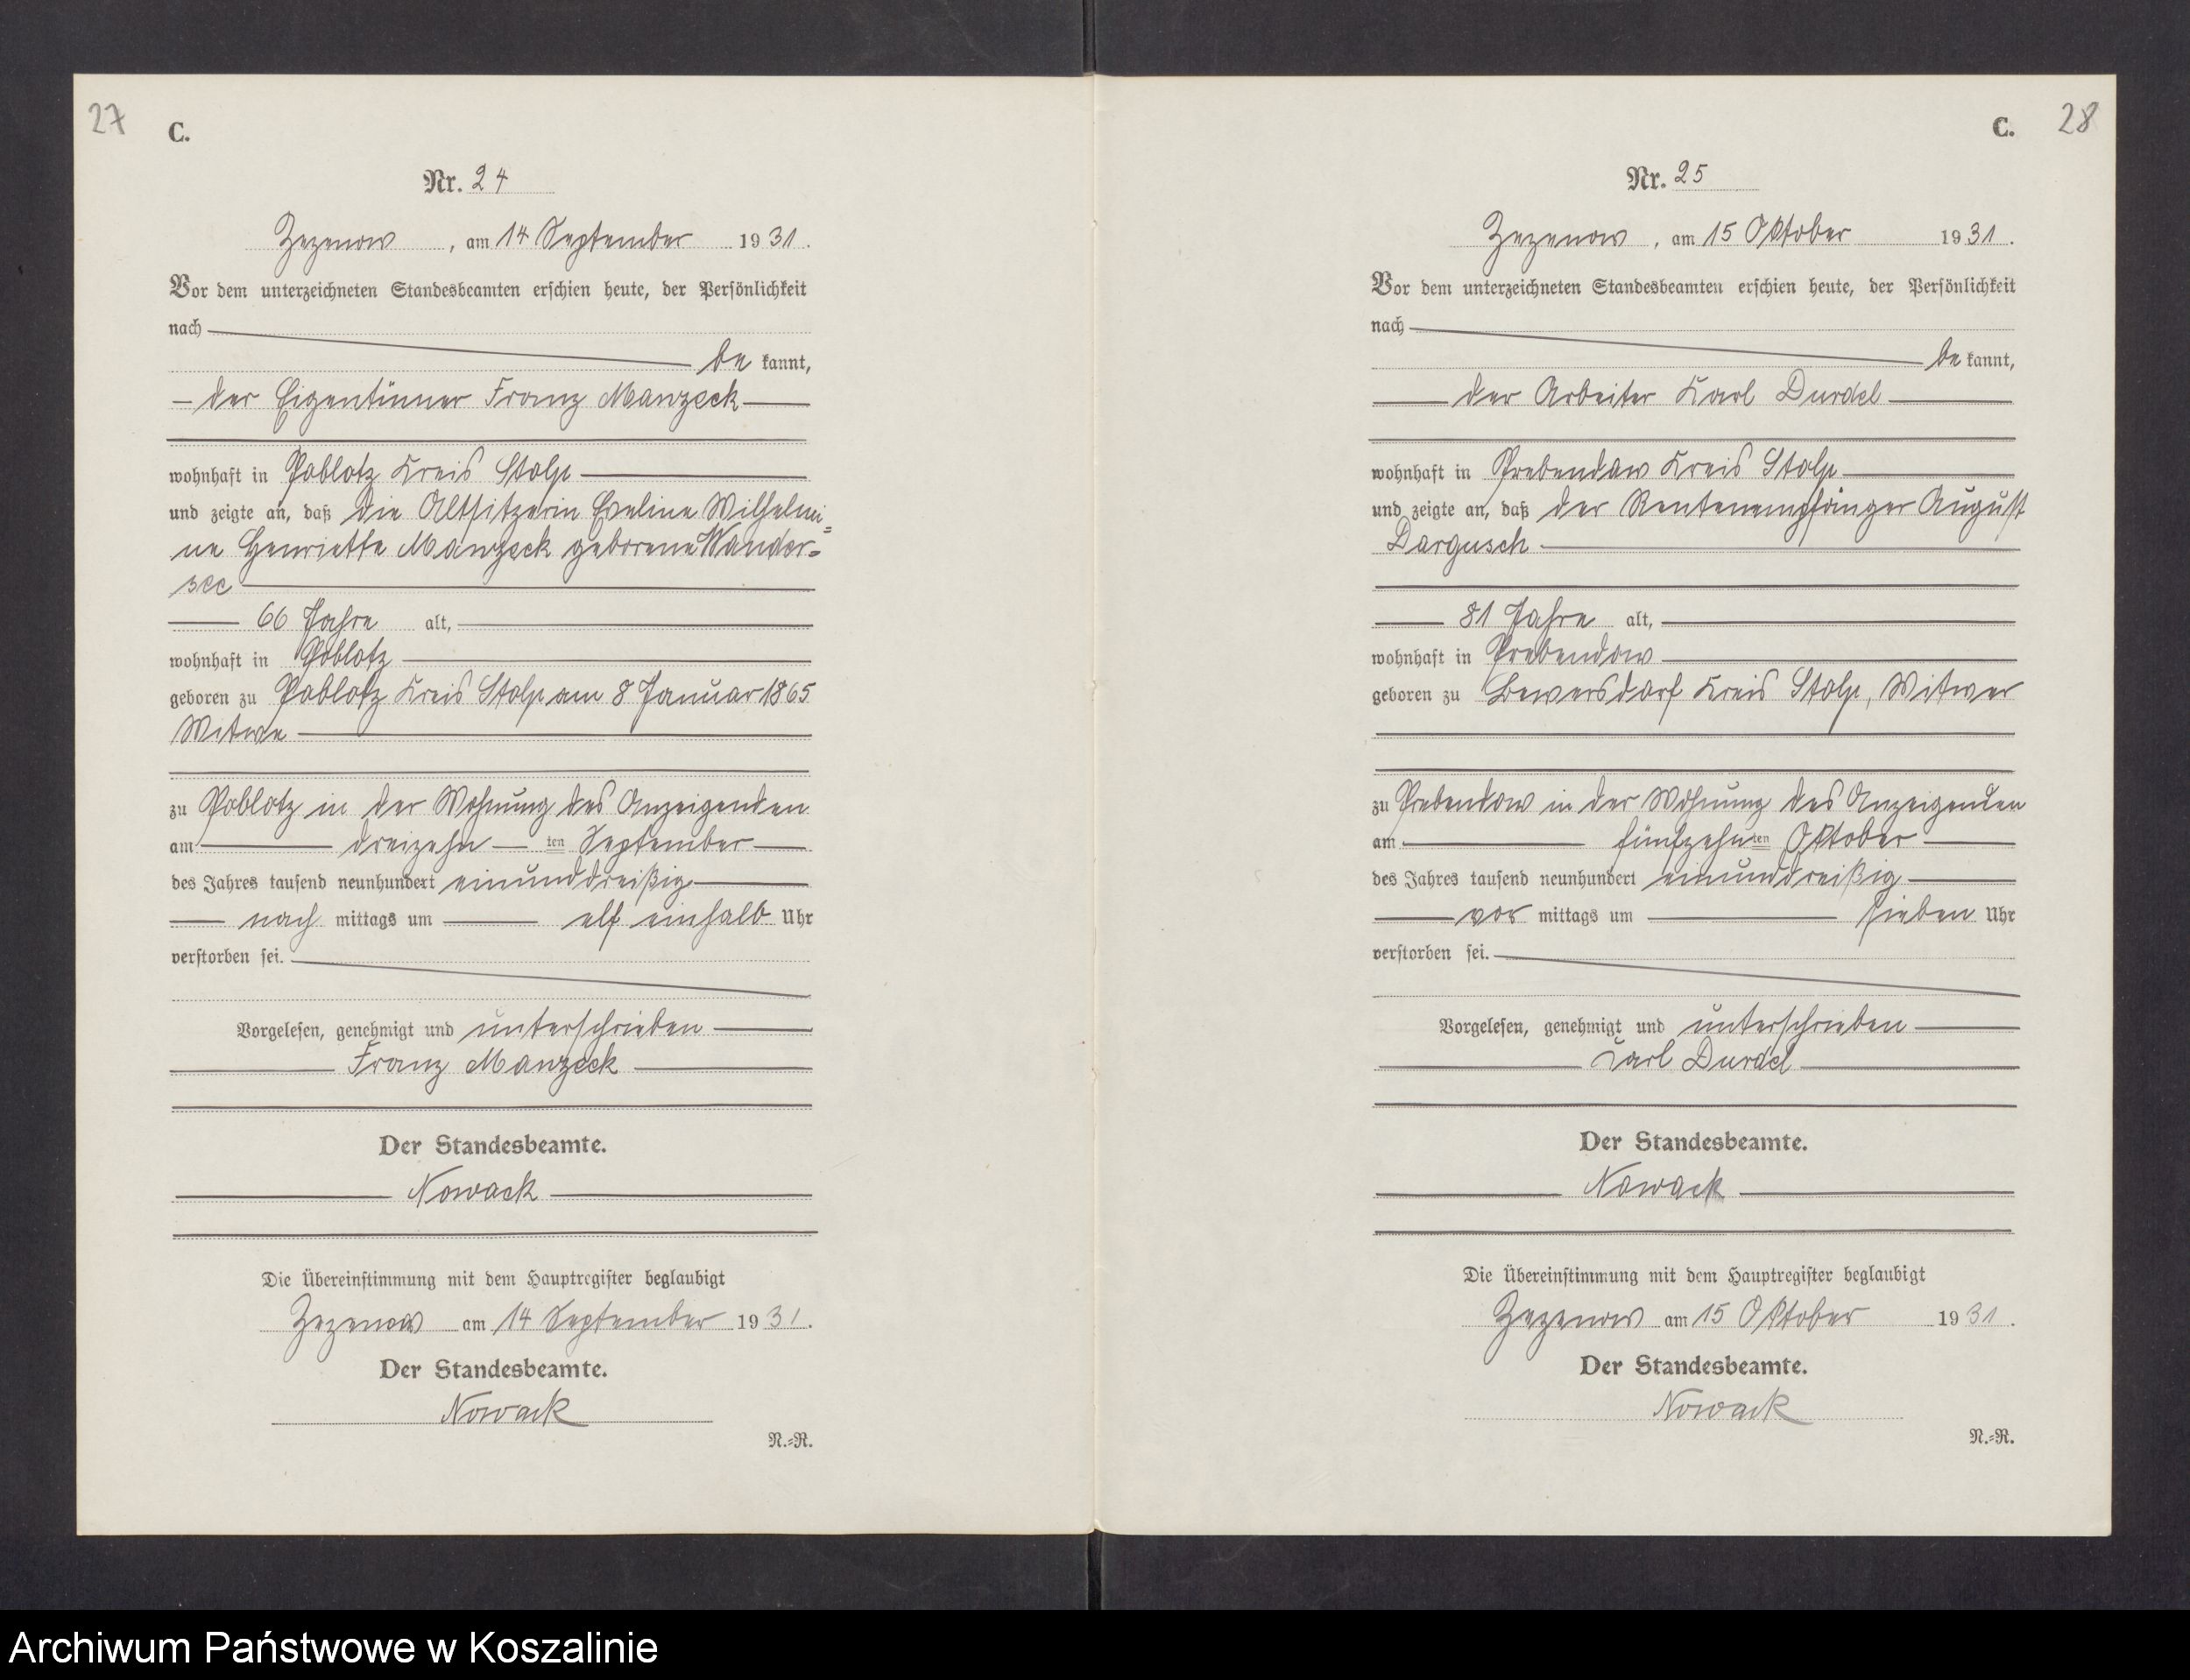 27
C.
Nr. 24
Zezenow, am 14 September 1931.
Vor dem unterzeichneten Standesbeamten erschien heute, der Persönlichkeit
nach
be kannt,
der Eigentümer Franz Manzeck
wohnhaft in Poblotz Kreis Stolp
und zeigte an, daß die Altsitzerin Eveline Wilhelmi=
ne Henriette Manzeck geborene Wander=
see
66 Jahre alt,
wohnhaft in Poblotz
geboren zu Poblotz Kreis Stolp am 8 Januar 1865
Witwe
zu Poblotz in der Wohnung des Anzeigenden
am dreizehn ten September
des Jahres tausend neunhundert einunddreißig
nach mittags um elf einhalb Uhr
verstorben sei.
Vorgelesen, genehmigt und unterschrieben
Franz Manzeck
Der Standesbeamte.
Nowack
Die Übereinstimmung mit dem Hauptregister beglaubigt
Zezenow am 14 September 1931.
Der Standesbeamte.
Nowack
N.=R.
C. 28
Nr. 25
Zezenow, am 15 Oktober 1931.
Vor dem unterzeichneten Standesbeamten erschien heute, der Persönlichkeit
nach
be kannt,
der Arbeiter Karl Durdel
wohnhaft in Prebendow Kreis Stolp
und zeigte an, daß der Rentenempfänger August
Dargusch
81 Jahre alt,
wohnhaft in Prebendow
geboren zu Bewersdorf Kreis Stolp, Witwer
zu Prebendow in der Wohnung des Anzeigenden
am fünfzehn ten Oktober
des Jahres tausend neunhundert einunddreißig
vor mittags um sieben Uhr
verstorben sei.
Vorgelesen, genehmigt und unterschrieben
Karl Durdel
Der Standesbeamte.
Nowack
Die Übereinstimmung mit dem Hauptregister beglaubigt
Zezenow am 15 Oktober 1931.
Der Standesbeamte.
Nowack
N.=R.
Archiwum Państwowe w Koszalinie